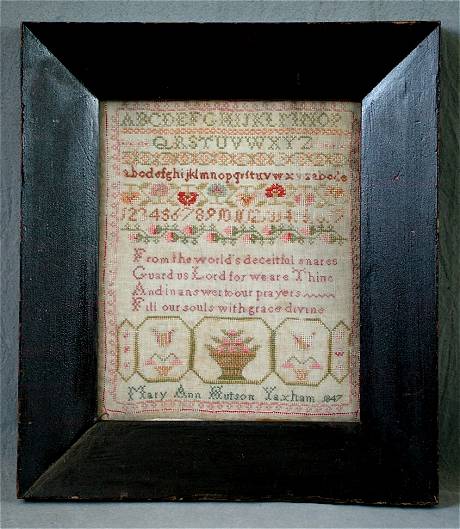 ABCDEFGHIJKLMNOP
QRSTUVWXYZ
abcdefghijklmnopqrſtuvwxyzabcde
From the world's deceitful snares
Guard us Lord for we are Thine
And in answer to our prayers
Fill our souls with grace divine
Mary Ann Hutson Yaxham 1847